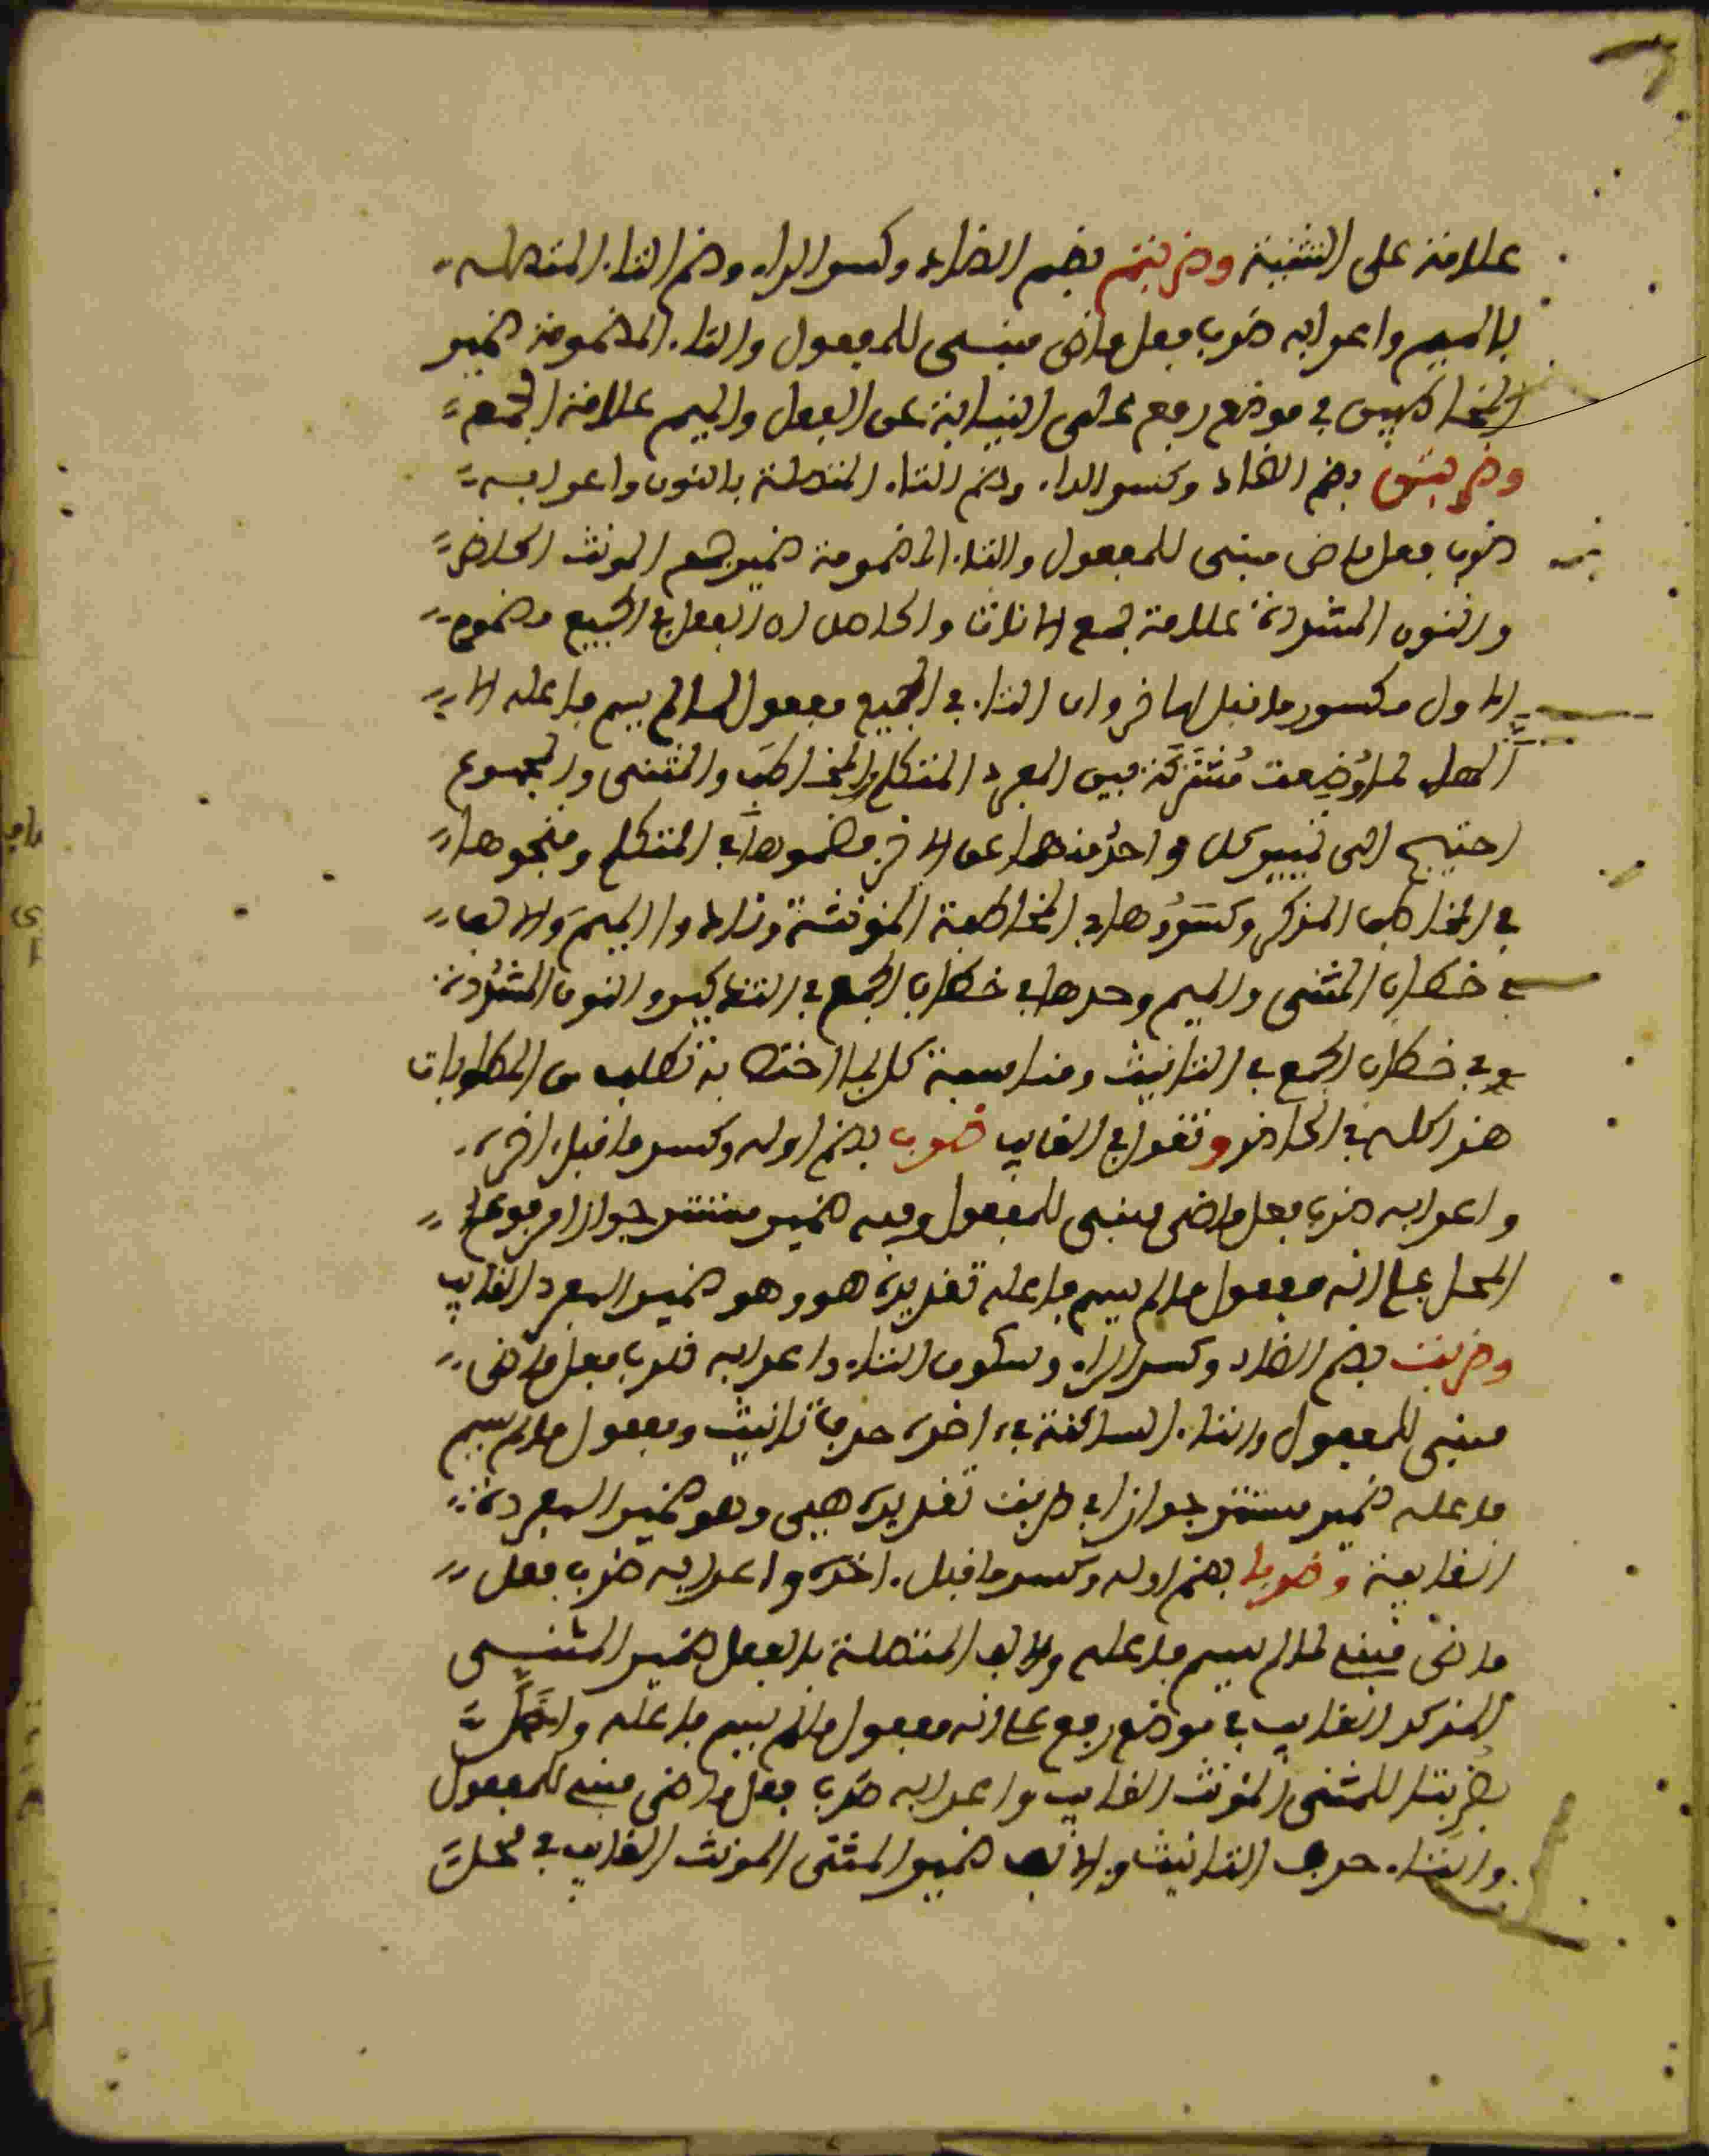 علامة على التثنية وضربتم بضم الضاد وكسر الراء وضم التاء المتصلة
بالميم واعرابه ضرب فعل ماض مبني للمفعول والتاء المضمومة ضمير
المخاطبين في موضع رفع على النيابة عن الفعل والميم علامة الجمع
وضربتن بضم الضاد وكسر الراء وضم التاء المتصلة بالنون واعرابه
ضرب فعل ماض مبني للمفعول والتاء المضمومة ضمير جمع المونث الحاضر
والنون المشددة علامة جمع الاناث والحاصل ان الفعل في الجميع مضموم
الاول مكسور ما قبل الاخر وان التاء في الجميع مفعول لما لم يسم فاعله الا
انها لما وُضِعت مُشتَرَكَة بين المفرد المتكلم والمخاطب والمثنى والمجموع
احتيج الى تمييز كل واحد منهما عن الاخر فضموها في المتكلم وفتحوها
في المخاطب المذكر وكسَرُوها في المخاطبة المؤنثة وزادوا الميمَ والالف
في خطاب المثنى والميم وحدها في خطاب الجمع في التذكير والنون المشدّدة
في خطاب الجمع في التانيث ومناسبة كل لما اختص به تطلب من المطولات
هذا كله في الحاضر وتقول في الغايب ضرب بضم اوله وكسر ما قبل اخره
واعرابه ضرب فعل ماضى مبني للمفعول وفيه ضمير مستتر جوازا مرفوع
المحل على انه مفعول ما لم يسم فاعله تقديره هو وهو ضمير المفرد الغايب
وضربت بضم الضاد وكسر الراء وسكون التاء واعرابه ضرب فعل ماضى
مبنى للمفعول والتاء الساكنة في اخره حرف تانيث ومفعول ما لم يسم
فاعله ضمير مستتر جوازا في ضربت تقديره هي وهو ضمير المفردة
الغايبة وضربا بضم اوله وكسر ما قبل اخره واعرابه ضرب فعل
ماضى مبنى لما لم يسم فاعله والالف المتصلة بالفعل ضمير المثنى
المذكر الغايب في موضع رفع على انه مفعول ما لم يسم فاعله
ضربتا للمثنى المؤنث الغايب واعرابه ضرب فعل ماضى مبنى للمفعول
والتاء حرف التانيث والالف ضمير المثنى المونث الغايب في محل